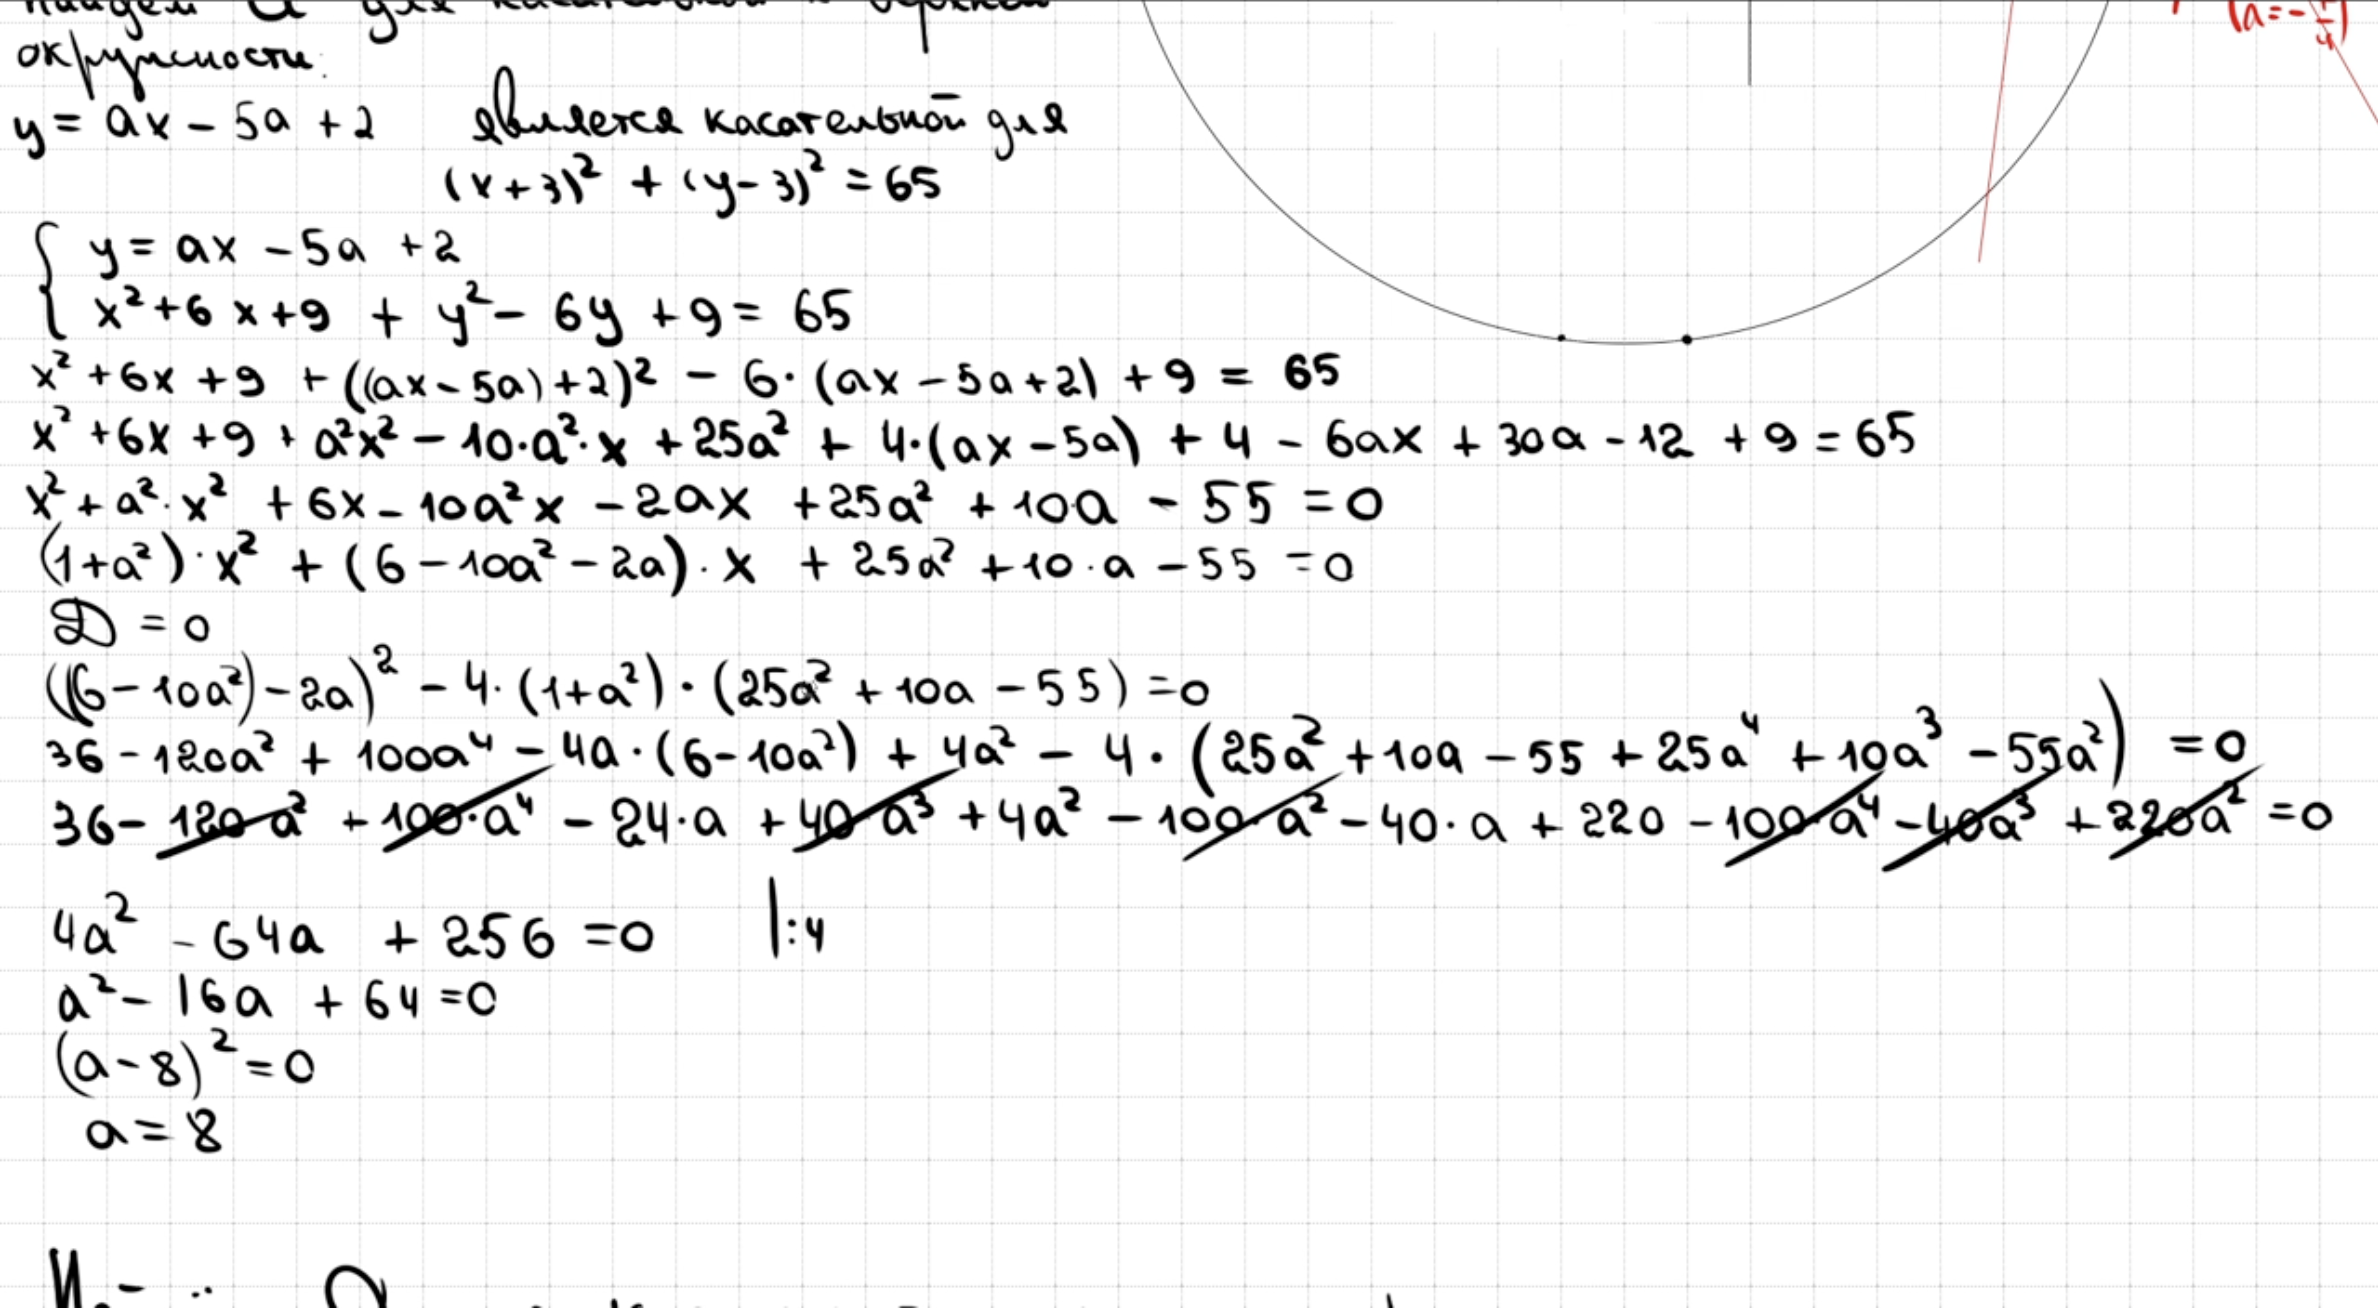 найдем a для касательной к верхней
окружности:
y = ax - 5a + 2 является касательной для
(x+3)² + (y-3)² = 65
{ y = ax - 5a + 2
x² + 6x + 9 + y² - 6y + 9 = 65
x² + 6x + 9 + ((ax - 5a) + 2)² - 6·(ax - 5a + 2) + 9 = 65
x² + 6x + 9 + a²x² - 10·a²·x + 25a² + 4·(ax - 5a) + 4 - 6ax + 30a - 12 + 9 = 65
x² + a²·x² + 6x - 10a²x - 2ax + 25a² + 10a - 55 = 0
(1+a²)·x² + (6 - 10a² - 2a)·x + 25a² + 10·a - 55 = 0
D = 0
((6 - 10a²) - 2a)² - 4·(1+a²)·(25a² + 10a - 55) = 0
36 - 120a² + 100a⁴ - 4a·(6 - 10a²) + 4a² - 4·(25a² + 10a - 55 + 25a⁴ + 10a³ - 55a²) = 0
36 - 120a² + 100·a⁴ - 24·a + 40·a³ + 4a² - 100·a² - 40·a + 220 - 100·a⁴ - 40a³ + 220a² = 0
4a² - 64a + 256 = 0 |:4
a² - 16a + 64 = 0
(a - 8)² = 0
a = 8